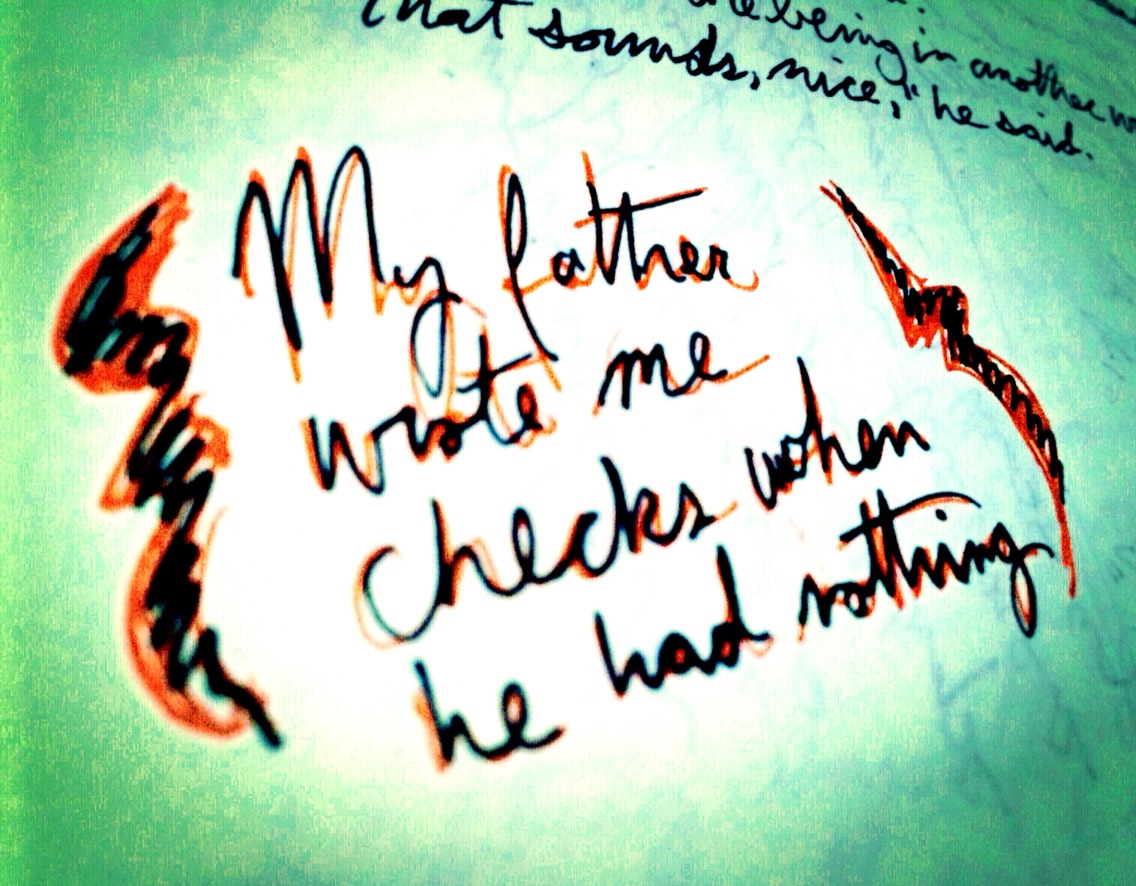 being in another
that sounds, nice," he said.
My father
wrote me
checks when
he had nothing